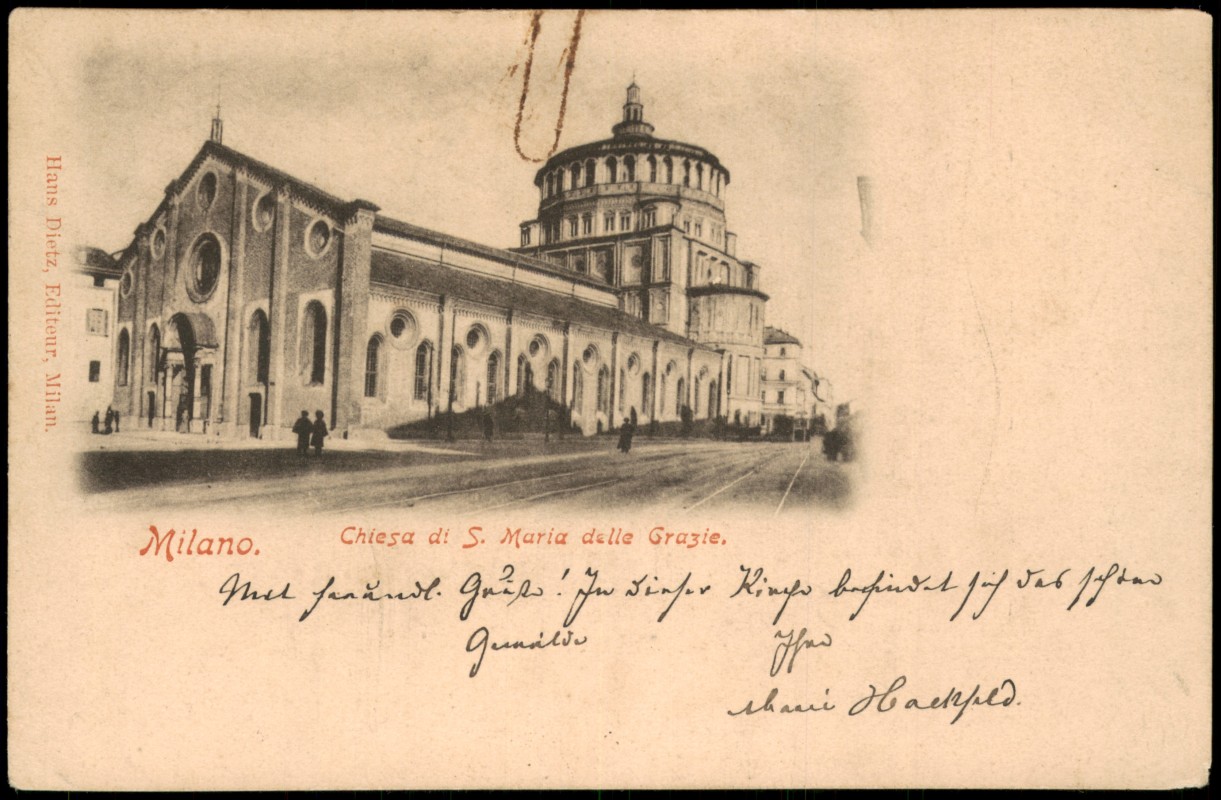 Hans Dietz, Editeur, Milan.
Milano.
Chiesa di S. Maria delle Grazie.
Mit freundl. Grüße! In dieser Kirche befindet sich das schöne
Gemälde Ihre
Marie Hackfeld.